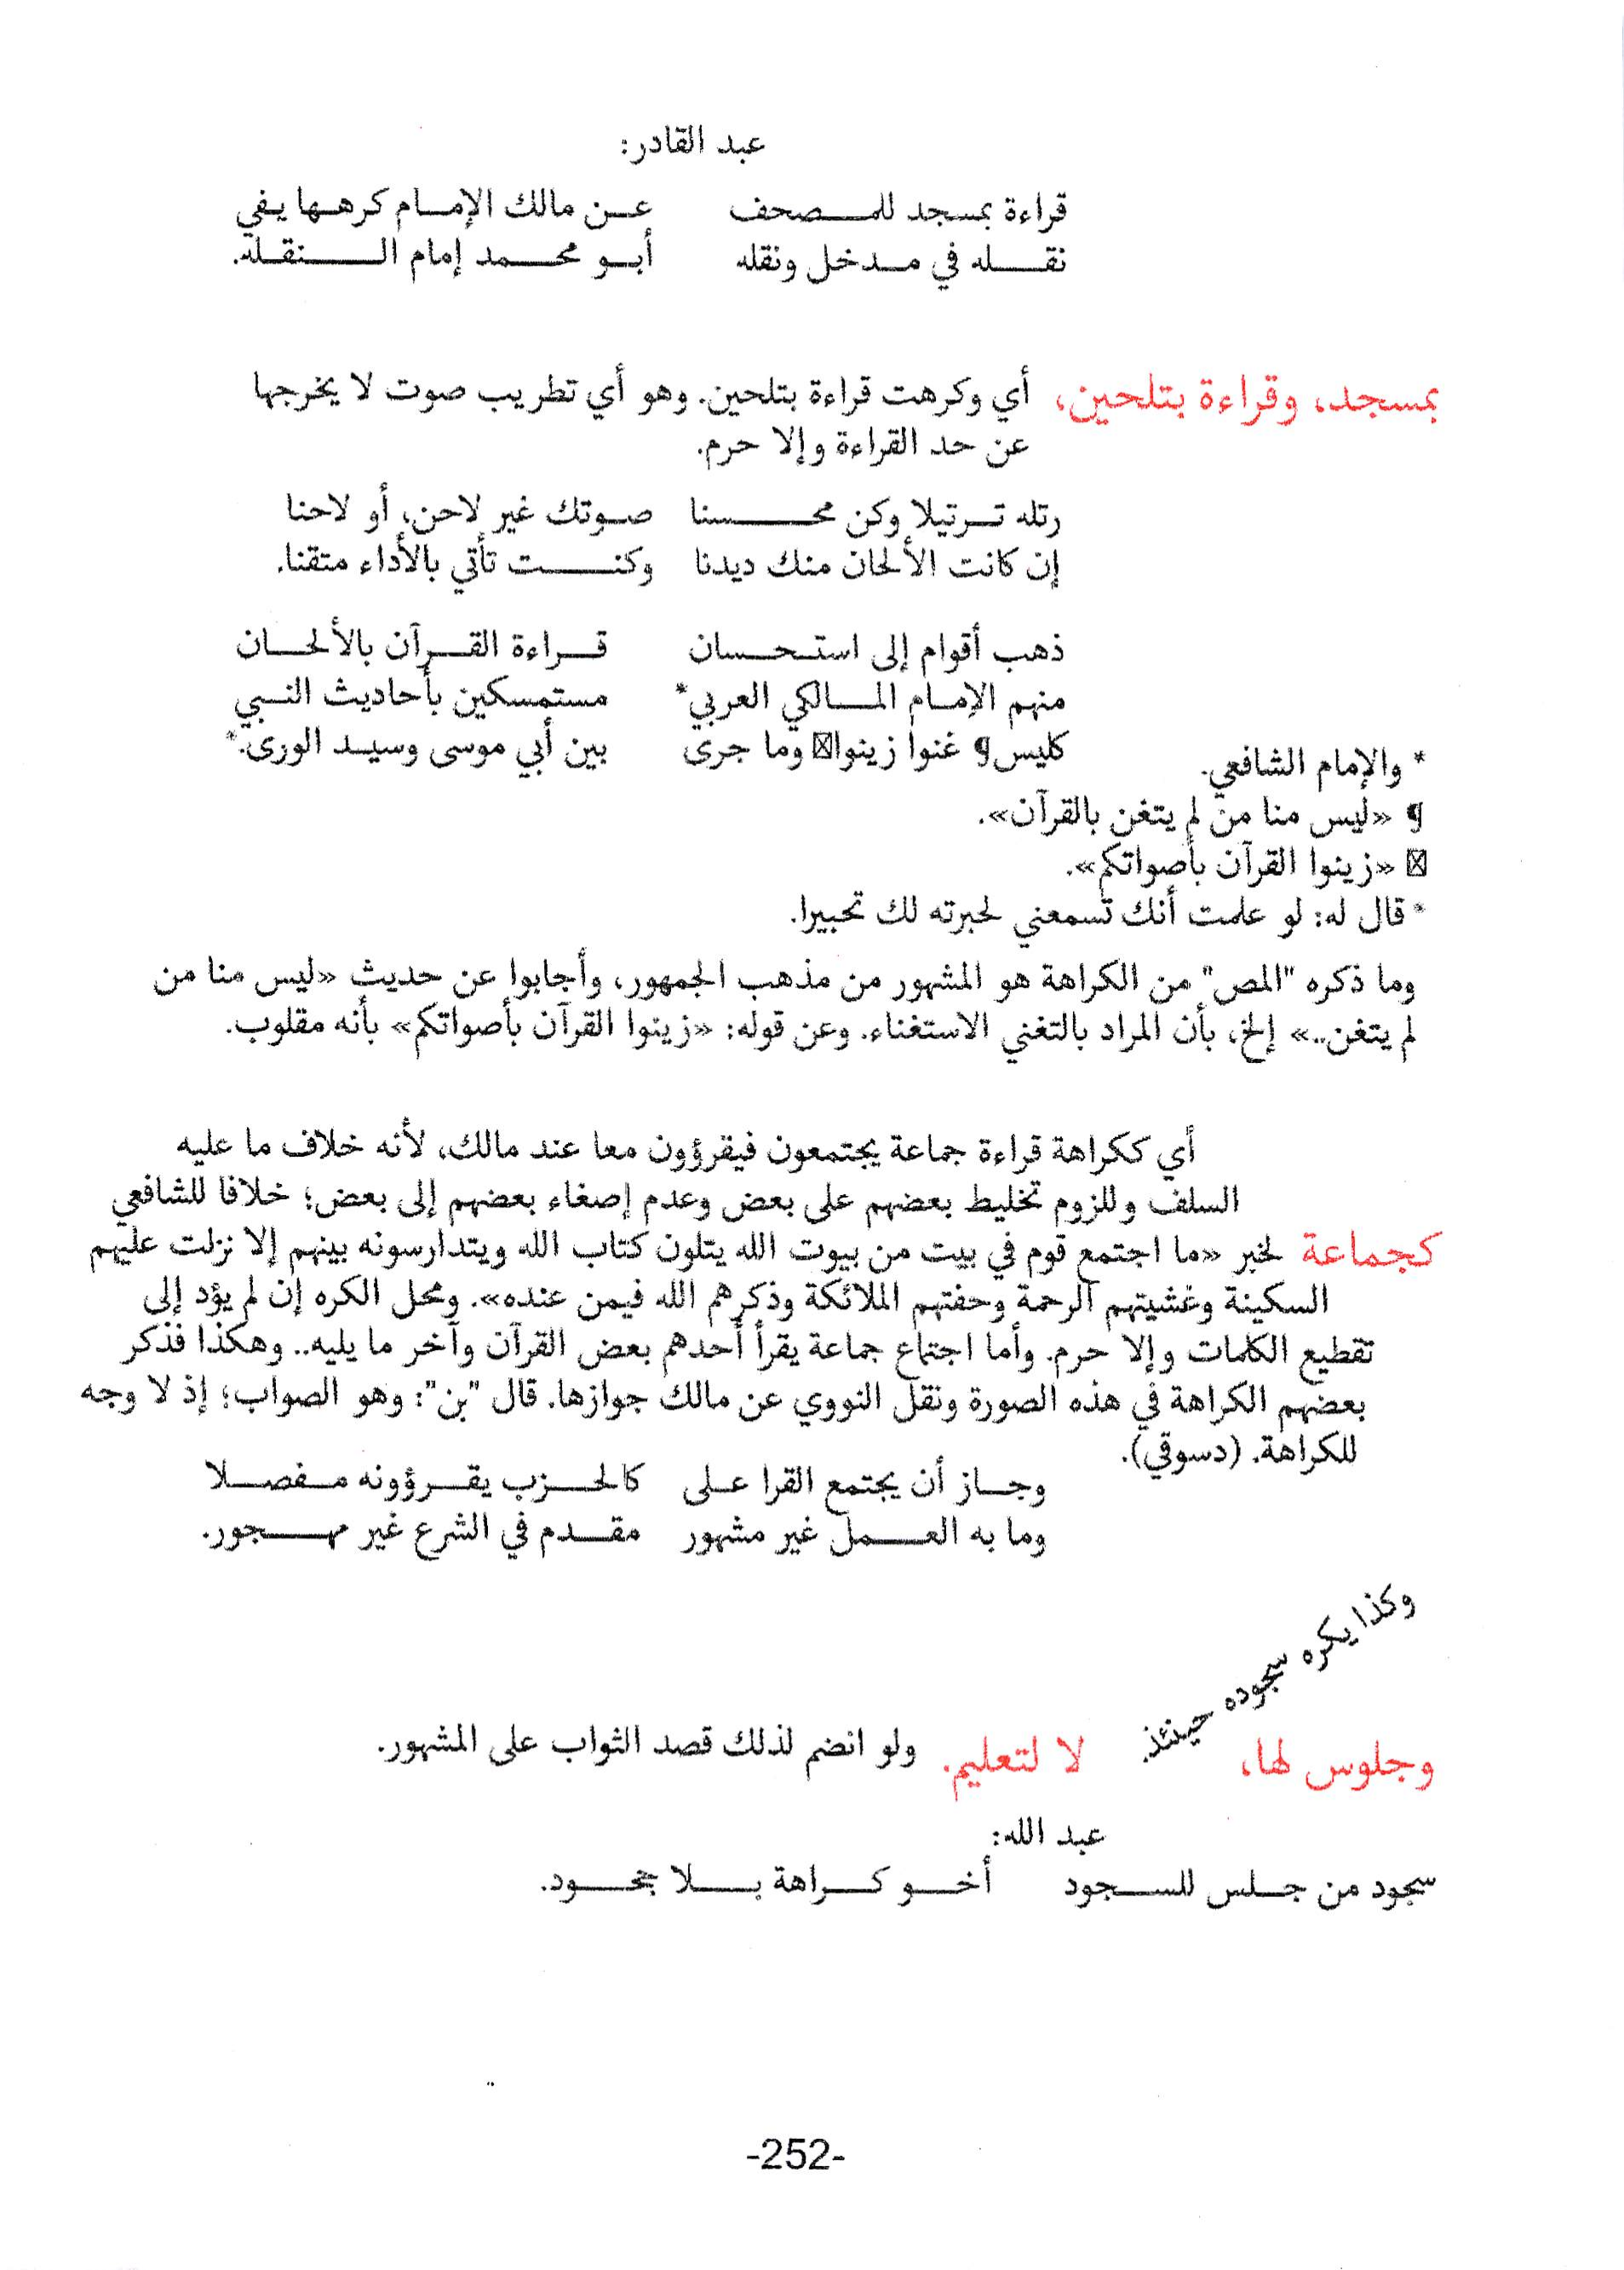 عبد القادر:
قراءة بمسجد للمصحف عن مالك الإمام كرهها يفي
نقله في مدخل ونقله أبو محمد إمام النقله.
بمسجد، وقراءة بتلحين، أي وكرهت قراءة بتلحين. وهو أي تطريب صوت لا يخرجها
عن حد القراءة وإلا حرم.
رتله ترتيلا وكن محسنا صوتك غير لاحن، أو لاحنا
إن كانت الألحان منك ديدنا وكنت تأتي بالأداء متقنا.
ذهب أقوام إلى استحسان قراءة القرآن بالألحان
منهم الإمام المالكي العربي* مستمسكين بأحاديث النبي
كليس¶ غنوا زينوا☒ وما جرى بين أبي موسى وسيد الورى.*
* والإمام الشافعي.
¶ «ليس منا من لم يتغن بالقرآن».
☒ «زينوا القرآن بأصواتكم».
* قال له: لو علمت أنك تسمعني لحبرته لك تحبيرا.
وما ذكره "المص" من الكراهة هو المشهور من مذهب الجمهور، وأجابوا عن حديث «ليس منا من
لم يتغن..» إلخ، بأن المراد بالتغني الاستغناء. وعن قوله: «زينوا القرآن بأصواتكم» بأنه مقلوب.
أي ككراهة قراءة جماعة يجتمعون فيقرؤون معا عند مالك، لأنه خلاف ما عليه
السلف وللزوم تخليط بعضهم على بعض وعدم إصغاء بعضهم إلى بعض؛ خلافا للشافعي
كجماعة لخبر «ما اجتمع قوم في بيت من بيوت الله يتلون كتاب الله ويتدارسونه بينهم إلا نزلت عليهم
السكينة وغشيتهم الرحمة وحفتهم الملائكة وذكرهم الله فيمن عنده». ومحل الكره إن لم يؤد إلى
تقطيع الكلمات وإلا حرم. وأما اجتماع جماعة يقرأ أحدهم بعض القرآن وآخر ما يليه.. وهكذا فذكر
بعضهم الكراهة في هذه الصورة ونقل النووي عن مالك جوازها. قال "بن": وهو الصواب؛ إذ لا وجه
للكراهة. (دسوقي).
وجاز أن يجتمع القرا على كالحزب يقرؤونه مفصلا
وما به العمل غير مشهور مقدم في الشرع غير مهجور.
وكذا يكره سجوده حينئذ.
وجلوس لها، لا لتعليم. ولو انضم لذلك قصد الثواب على المشهور.
عبد الله:
سجود من جلس للسجود أخو كراهة بلا جحود.
-252-